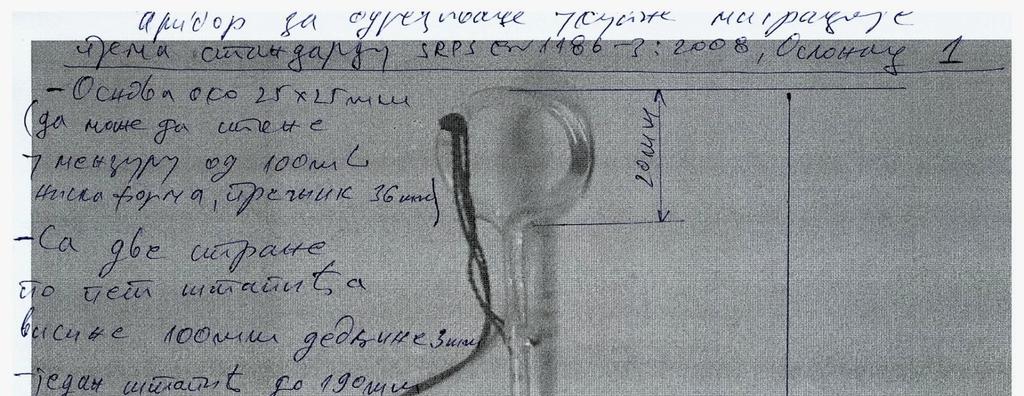 прибор за одређивање укупне миграције
према стандарду SRPS EN 1186-3:2008, Ослонац 1
- Основа око 25x25mm
(да може да стане
у мензуру од 100mL
ниска форма, пречник 36mm)
- Са две стране
по пет штапића
висине 100mm дебљине 3mm
- један штапић до 190mm
20mm